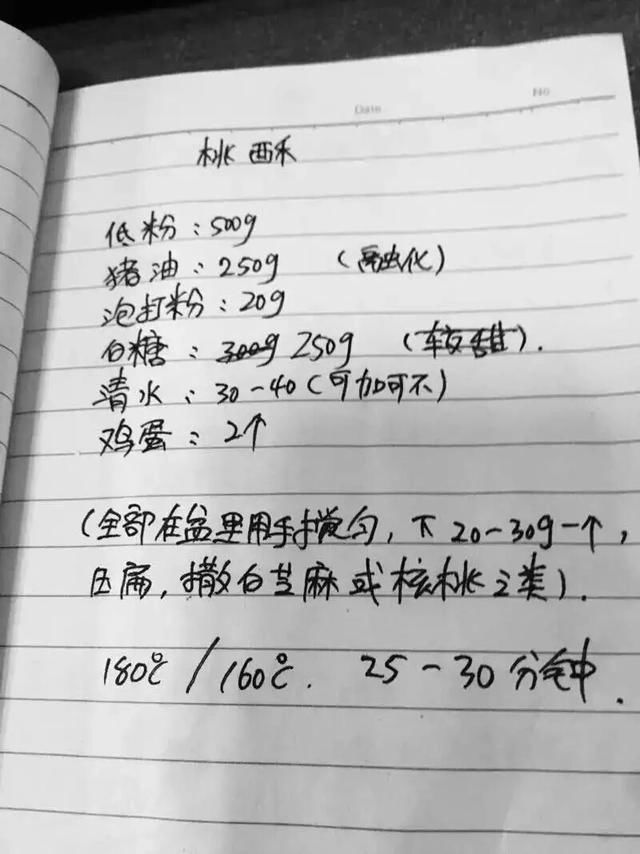 Date
No
桃酥
低粉：500g
猪油：250g （需融化）
泡打粉：20g
白糖：300g 250g （较甜）.
清水：30-40（可加可不）
鸡蛋：2个
（全部在盆里用手搅匀，下20-30g一个，
压扁，撒白芝麻或核桃之类）.
180℃/160℃. 25-30分钟.